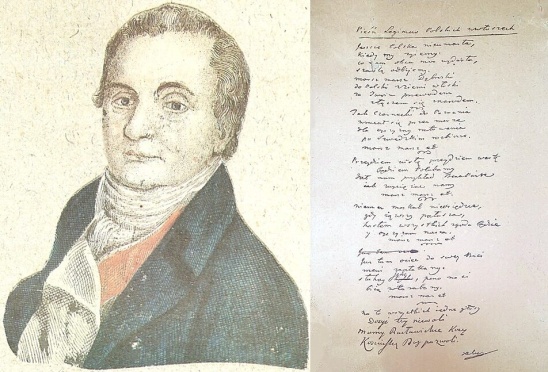 Pieśń Legionów Polskich we Włoszech
Jeszcze Polska nie umarła,
kiedy my żyjemy.
co nam obca moc wydarła,
szablą odbijemy.
marsz marsz Dąbrowski
do Polski z ziemi włoski
za Twoim przewodem
złączem się z narodem.
Jak Czarnecki do Poznania
wracał się przez morze
dla ojczyzny ratowania
po Szwedzkim rozbiorze.
marsz marsz et
Przejdziem Wisłę przejdziem Wartę
będziem Polakami
dał nam przykład Bonaparte
jak zwyciężać mamy
marsz marsz et
Niemiec moskal nie osiędzie,
gdy jąwszy pałasza,
hasłem wszystkich zgoda będzie
y ojczyzna nasza.
marsz marsz et
Już tam ociec do swej Basi
mówi zapłakany:
słuchay jeno, pono nasi
biją w tarabany.
marsz marsz et
na to wszystkich jedne głosy
Dosyć tey niewoli
Mamy Racławickie Kosy
Kościuszkę Bóg pozwoli.